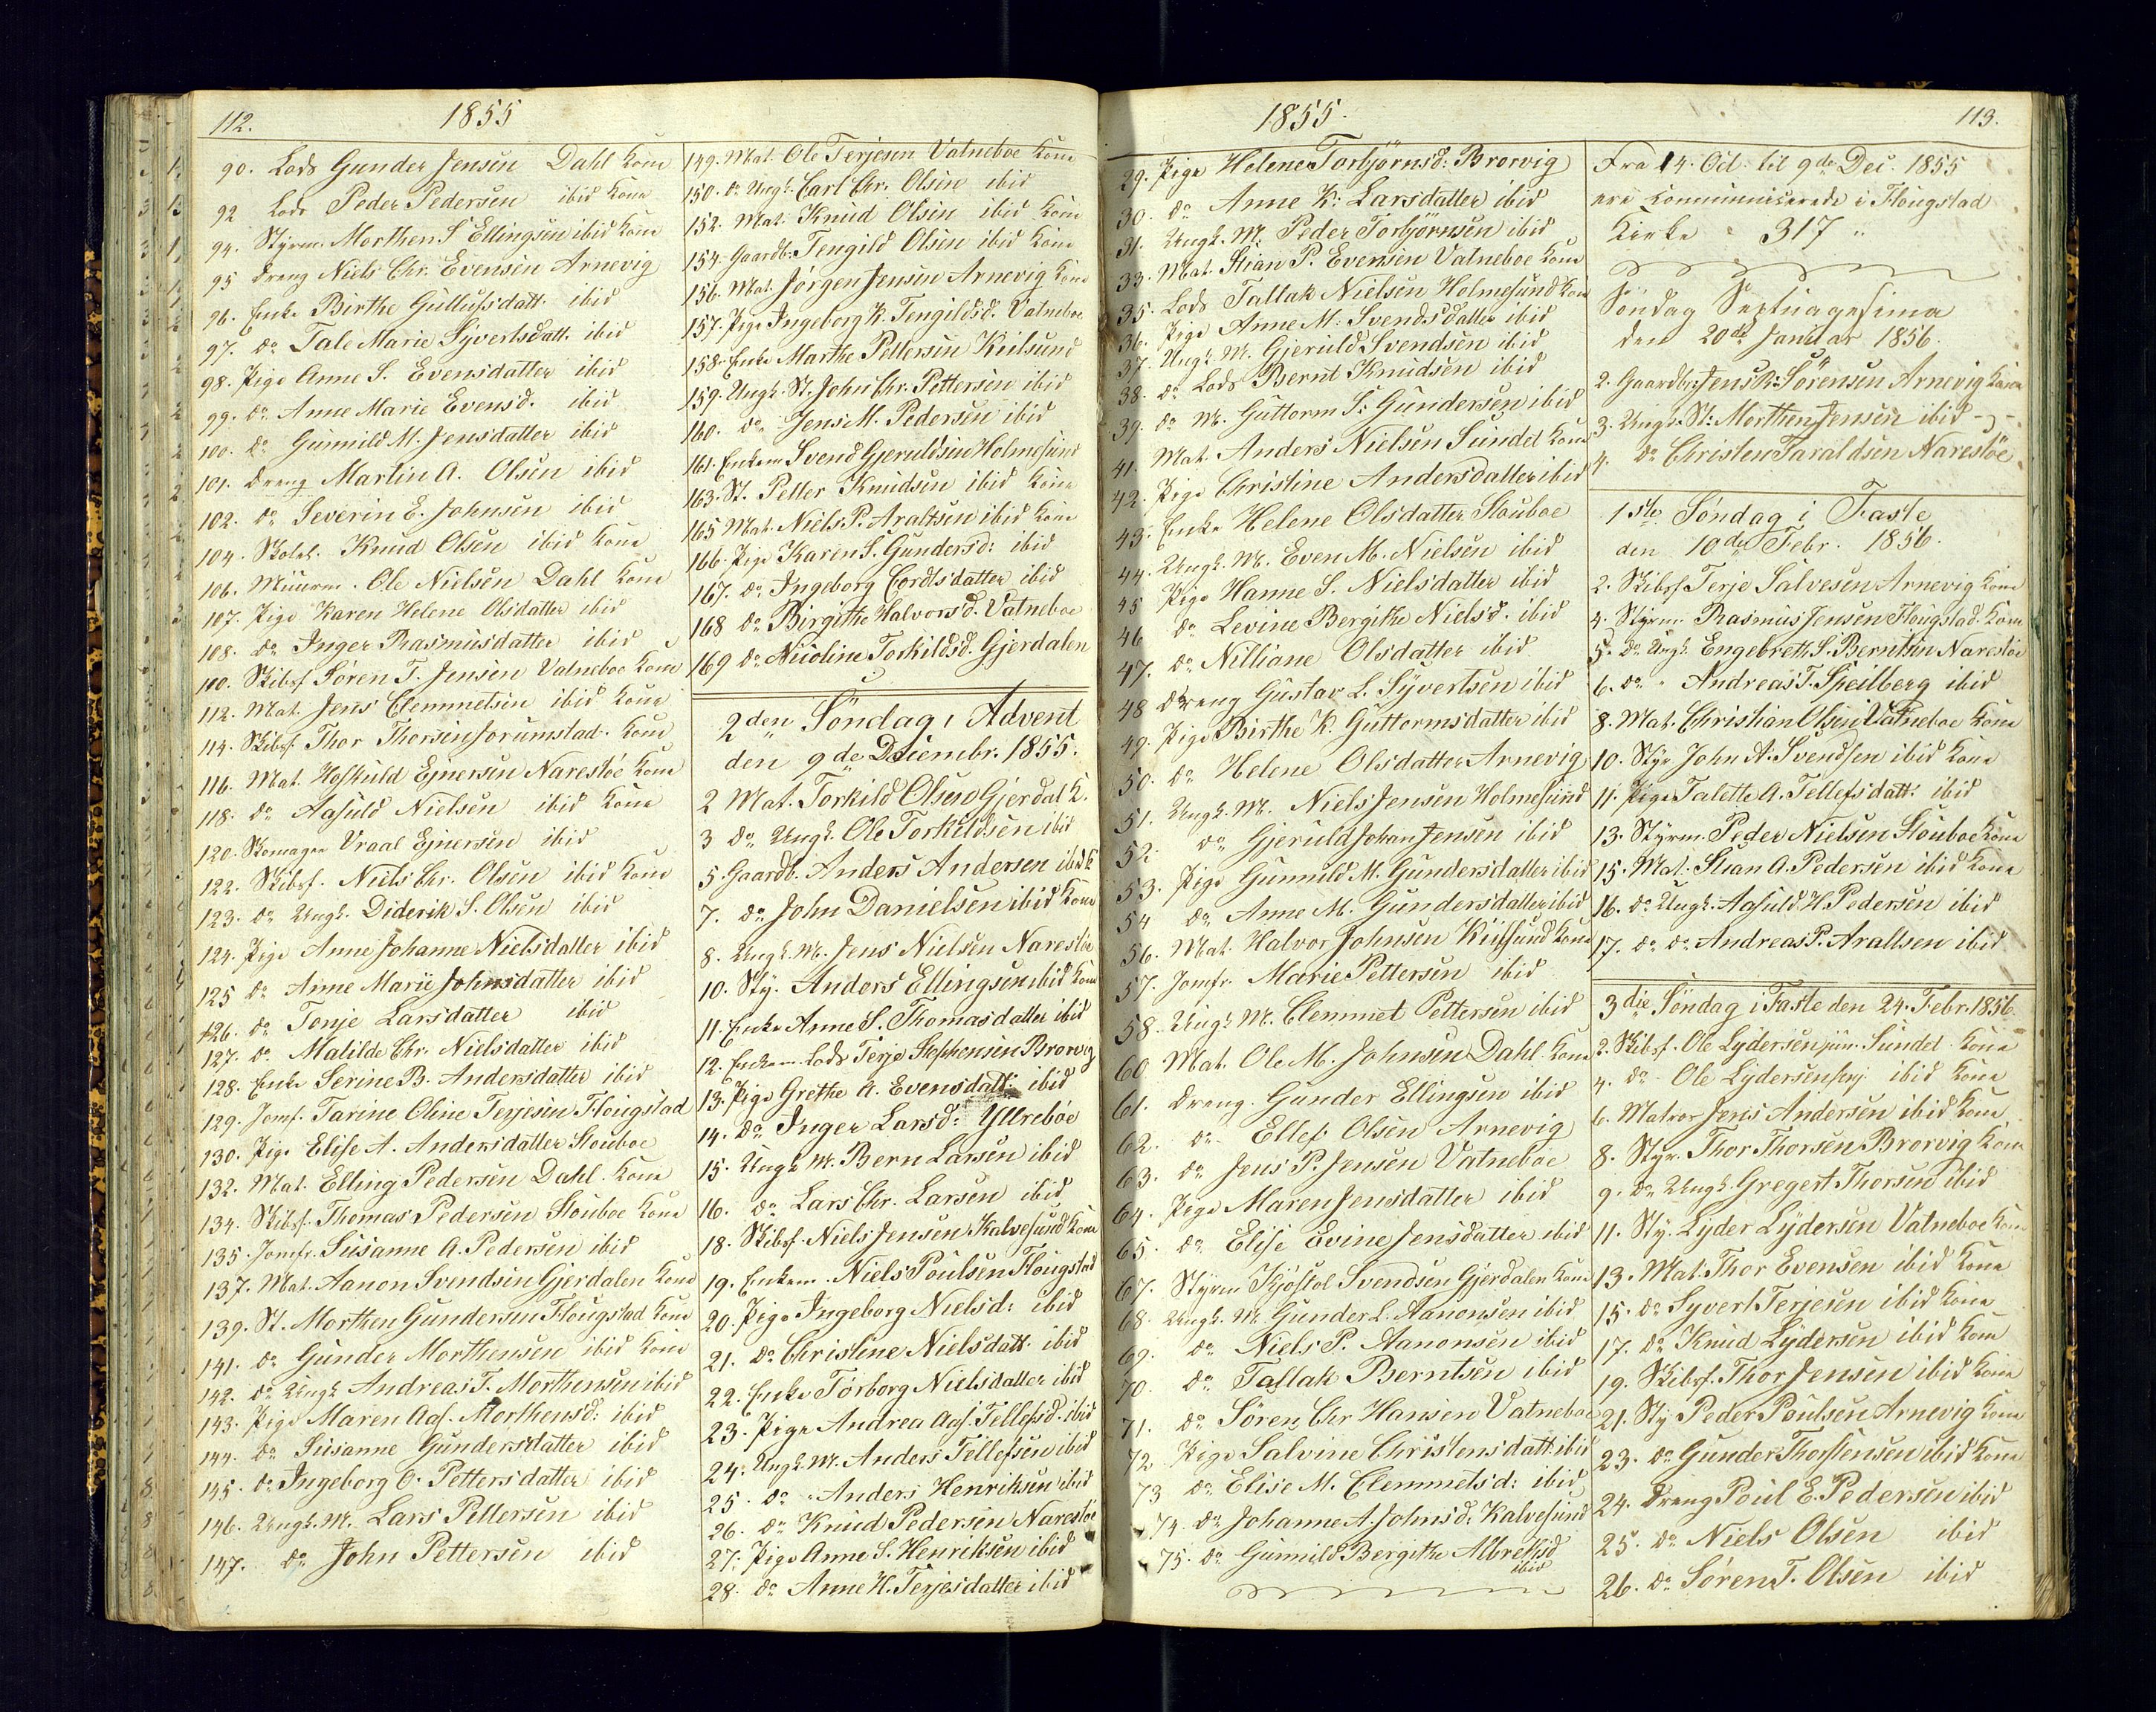 112.
1855
90. Lods Gunder Jensen Dahl Kone
92 Lods Peder Pedersen ibid Kone
94. Styrm. Morthen S Ellingsen ibid Kone
95 Dreng Niels Chr. Evensen Arnevig
96. Enke Birthe Gullufsdatt. ibid
97. do Tale Marie Syvertsdatt. ibid
98. Pige Anne S. Evensdatter ibid
99. do Anne Marie Evensd. ibid
100. do Gunnild M. Jensdatter ibid
101. Dreng Martin A. Olsen ibid
102. do Severin E. Johnsen ibid
104. Skolel. Knud Olsen ibid Kone
106. Muurm. Ole Nielsen Dahl Kone
107. Pige Karen Helene Olsdatter ibid
108. do Inger Rasmusdatter ibid
110. Skibsf Søren T. Jensen Vatneboe Kone
112. Mat. Jens Clemmetsen ibid Kone
114. Skibsf. Thor Thorsen Jorumstad. Kone
116. Mat Hofkuld Ejnersen Narestöe Kone
118. do Aasuld Nielsen ibid Kone
120. Skomager Vraal Ejnersen ibid
122. Skibsf. Niels Chr. Olsen ibid Kone
123. do Ungk. Diderik S. Olsen ibid
124. Pige Anne Johanne Nielsdatter ibid
125 do Anne Marie Johnsdatter ibid
126. do Tonje Larsdatter ibid
127. do Matilde Chr. Nielsdatter ibid
128. Enke Serine B. Andersdatter ibid
129. Jomf. Tarine Oline Terjesen Flougstad
130. Pige Elise A. Andersdatter Stouboe
132. Mat. Elling Pedersen Dahl. Kone
134. Skibsf. Thomas Pedersen Stouboe Kone
135. Jomfr. Susanne A. Pedersen ibid
137. Mat. Aanon Svendsen Gjerdalen Kone
139. St. Morthen Gundersen Flougstad Kone
141. do Gunder Morthensen ibid Kone
142. do Ungk Andreas T. Morthensen ibid
143. Pige Maren Aas. Morthensd: ibid
144. do Susanne Gundersdatter ibid
145. do Ingeborg O. Pettersdatter ibid
146. Ungk. M. Lars Pettersen ibid
147. do John Pettersen ibid
149. Mat. Ole Terjesen Vatneboe Kone
150. do Ungk. Carl Chr. Olsen ibid
152. Mat. Knud Olsen ibid Kone
154. Gaardb. Tengild Olsen ibid Kone
156. Mat. Jörgen Jensen Arnevig Kone
157. Pige Ingeborg K. Tengildsd. Vatneboe
158. Enke Marthe Pettersen Keilsund
159. Ungk. St. John Chr. Pettersen ibid
160. do Jens M. Pedersen ibid
161. Enkem Svend Gjeruldsen Holmesund
163. St. Petter Knudsen ibid Kone
165 Mat. Niels P. Araltsen ibid Kone
166. Pige Karen S. Gundersd: ibid
167. do Ingeborg Cordtsdatter ibid
168 do Birgithe Halvorsd. Vatneboe
169 do Nicoline Torkildsd. Gjerdalen
2den Söndag i Advent
den 9de Decembr. 1855.
2 Mat. Torkild Olsen Gjerdal K.
3 do Ungk. Ole Torkildsen ibid
5. Gaardb. Anders Andersen ibid K
7. do John Danielsen ibid Kone
8. Ungk. M. Jens Nielsen Narestöe
10. Sty. Anders Ellingsen ibid Kone
11. Enke Anne S. Thomasdatter ibid
12. Enkem. Lods Terje Stephensen Brorvig
13. Pige Grethe A. Evensdatt: ibid
14. do Inger Larsd: Yttreböe
15. Ungk M. Bern Larsen ibid
16. do Lars Chr. Larsen ibid
18. Skibsf. Niels Jensen Kalvesund Kone
19. Enkem. Niels Poulsen Flougstad
20. Pige Ingeborg Nielsd: ibid
21. do Christine Nielsdatt. ibid
22. Enke Torborg Nielsdatter ibid
23. Pige Andrea Aas. Tellefsd. ibid
24. Ungk. M. Anders Tellefsen ibid
25. do Anders Henriksen ibid
26. do Knud Pedersen Narestöe
27. Pige Anne S. Henriksen ibid
28. do Anne H. Terjesdatter ibid
1855.
113.
29. Pige Helene Torbjörnsd: Brorvig
30. do Anne K: Larsdatter ibid
31. Ungk. M: Peder Torbjörnsen ibid
33. Mat. Stian P. Evensen Vatneboe Kone
35. Lods Tallak Nielsen Holmesund Kone
36. Pige Anne M: Svendsdatter ibid
37. Ungk. M. Gjeruld Svendsen ibid
38. do Lods Bernt Knudsen ibid
39. do M. Guttorm S: Gundersen ibid
41. Mat. Anders Nielsen Sundet Kone
42. Pige Christine Andersdatter ibid
43. Enke Helene Olsdatter Stouboe
44. Ungk. M. Even M. Nielsen ibid
45 Pige Hanne S. Nielsdatter ibid
46 do Levine Bergithe Nielsd. ibid
47. do Nilliane Olsdatter ibid
48 Dreng Gustav L. Syvertsen ibid
49. Pige Birthe K. Guttormsdatter ibid
50. do Helene Olsdatter Arnevig
51. Ungk. M. Niels Jensen Holmesund
52 do Gjeruld Johan Jensen ibid
53. Pige Gunnild M. Gundersdatter ibid
54 do Anne M. Gundersdatter ibid
56. Mat. Halvor Johnsen Keilsund Kone
57. Jomfr. Marie Pettersen ibid
58. Ungk M. Clemmet Pettersen ibid
60. Mat. Ole M. Johnsen Dahl. Kone
61. Dreng. Gunder Ellingsen ibid
62. do Ellef Olsen Arnevig
63. do Jens P. Jensen Vatneboe
64. Pige Maren Jensdatter ibid
65. do Elise Evine Jensdatter ibid
67. Styrm Kjöstol Svendsen Gjerdalen Kone
68. Ungk. M. Gunder L. Aanonsen ibid
69. do Niels P. Aanonsen ibid
70. do Tallak Berntsen ibid
71. do Sören Chr Hansen Vatneboe
72 Pige Salvine Christensdatt: ibid
73 do Elise M. Clemmetsd: ibid
74. do Johanne A. Johnsd: Kalvesund
75. do Gunnild Bergithe Albretsd
ibid
Fra 14. Oct. til 9de Dec. 1855
ere kommunicerede i Flougstad
Kirke 317
Söndag Septuagesima
den 20de Januar 1856.
2. Gaardbr. Jens R: Sörensen Arnevig Kone
3. Ungk. St: Morthen Jensen ibid
4. do Christen Taraldsen Narestöe
1ste Söndag i Faste
den 10de Febr. 1856.
2. Skibsf Terje Salvesen Arnevig Kone
4. Styrm Rasmus Jensen Flougstad. Kone
5. do Ungk. Engebreth S. Berntsen Narestöe
6. do " Andreas T. Speilberg ibid
8. Mat. Christian Olsen Vatneboe Kone
10. Styr John A. Svendsen ibid Kone
11. Pige Talette A. Tellefsdatt: ibid
13. Styrm. Peder Nielsen Stouboe Kone
15. Mat. Stian A. Pedersen ibid Kone
16. do Ungk. Aasuld H. Pedersen ibid
17. do do Andreas P. Araltsen ibid
3die Söndag i Faste den 24. Febr. 1856.
2. Skibsf. Ole Lydersen jun. Sundet Kone
4. do Ole Lydersen senj ibid Kone
6. Matros Jens Andersen ibid Kone
8. Styr. Thor Thorsen Brorvig Kone
9. do Ungk. Gregert Thorsen ibid
11. Sty. Lyder Lydersen Vatneboe Kone
13. Mat. Thor Evensen ibid Kone
15. do Syvert Terjesen ibid Kone
17. do Knud Lydersen ibid Kone
19. Skibsf. Thor Jensen ibid Kone
21. Sty Peder Poulsen Arnevig Kone
23. do Gunder Thorstensen ibid Kone
24. Dreng Poul E. Pedersen ibid
25. do Niels Olsen ibid
26. do Sören T. Olsen ibid